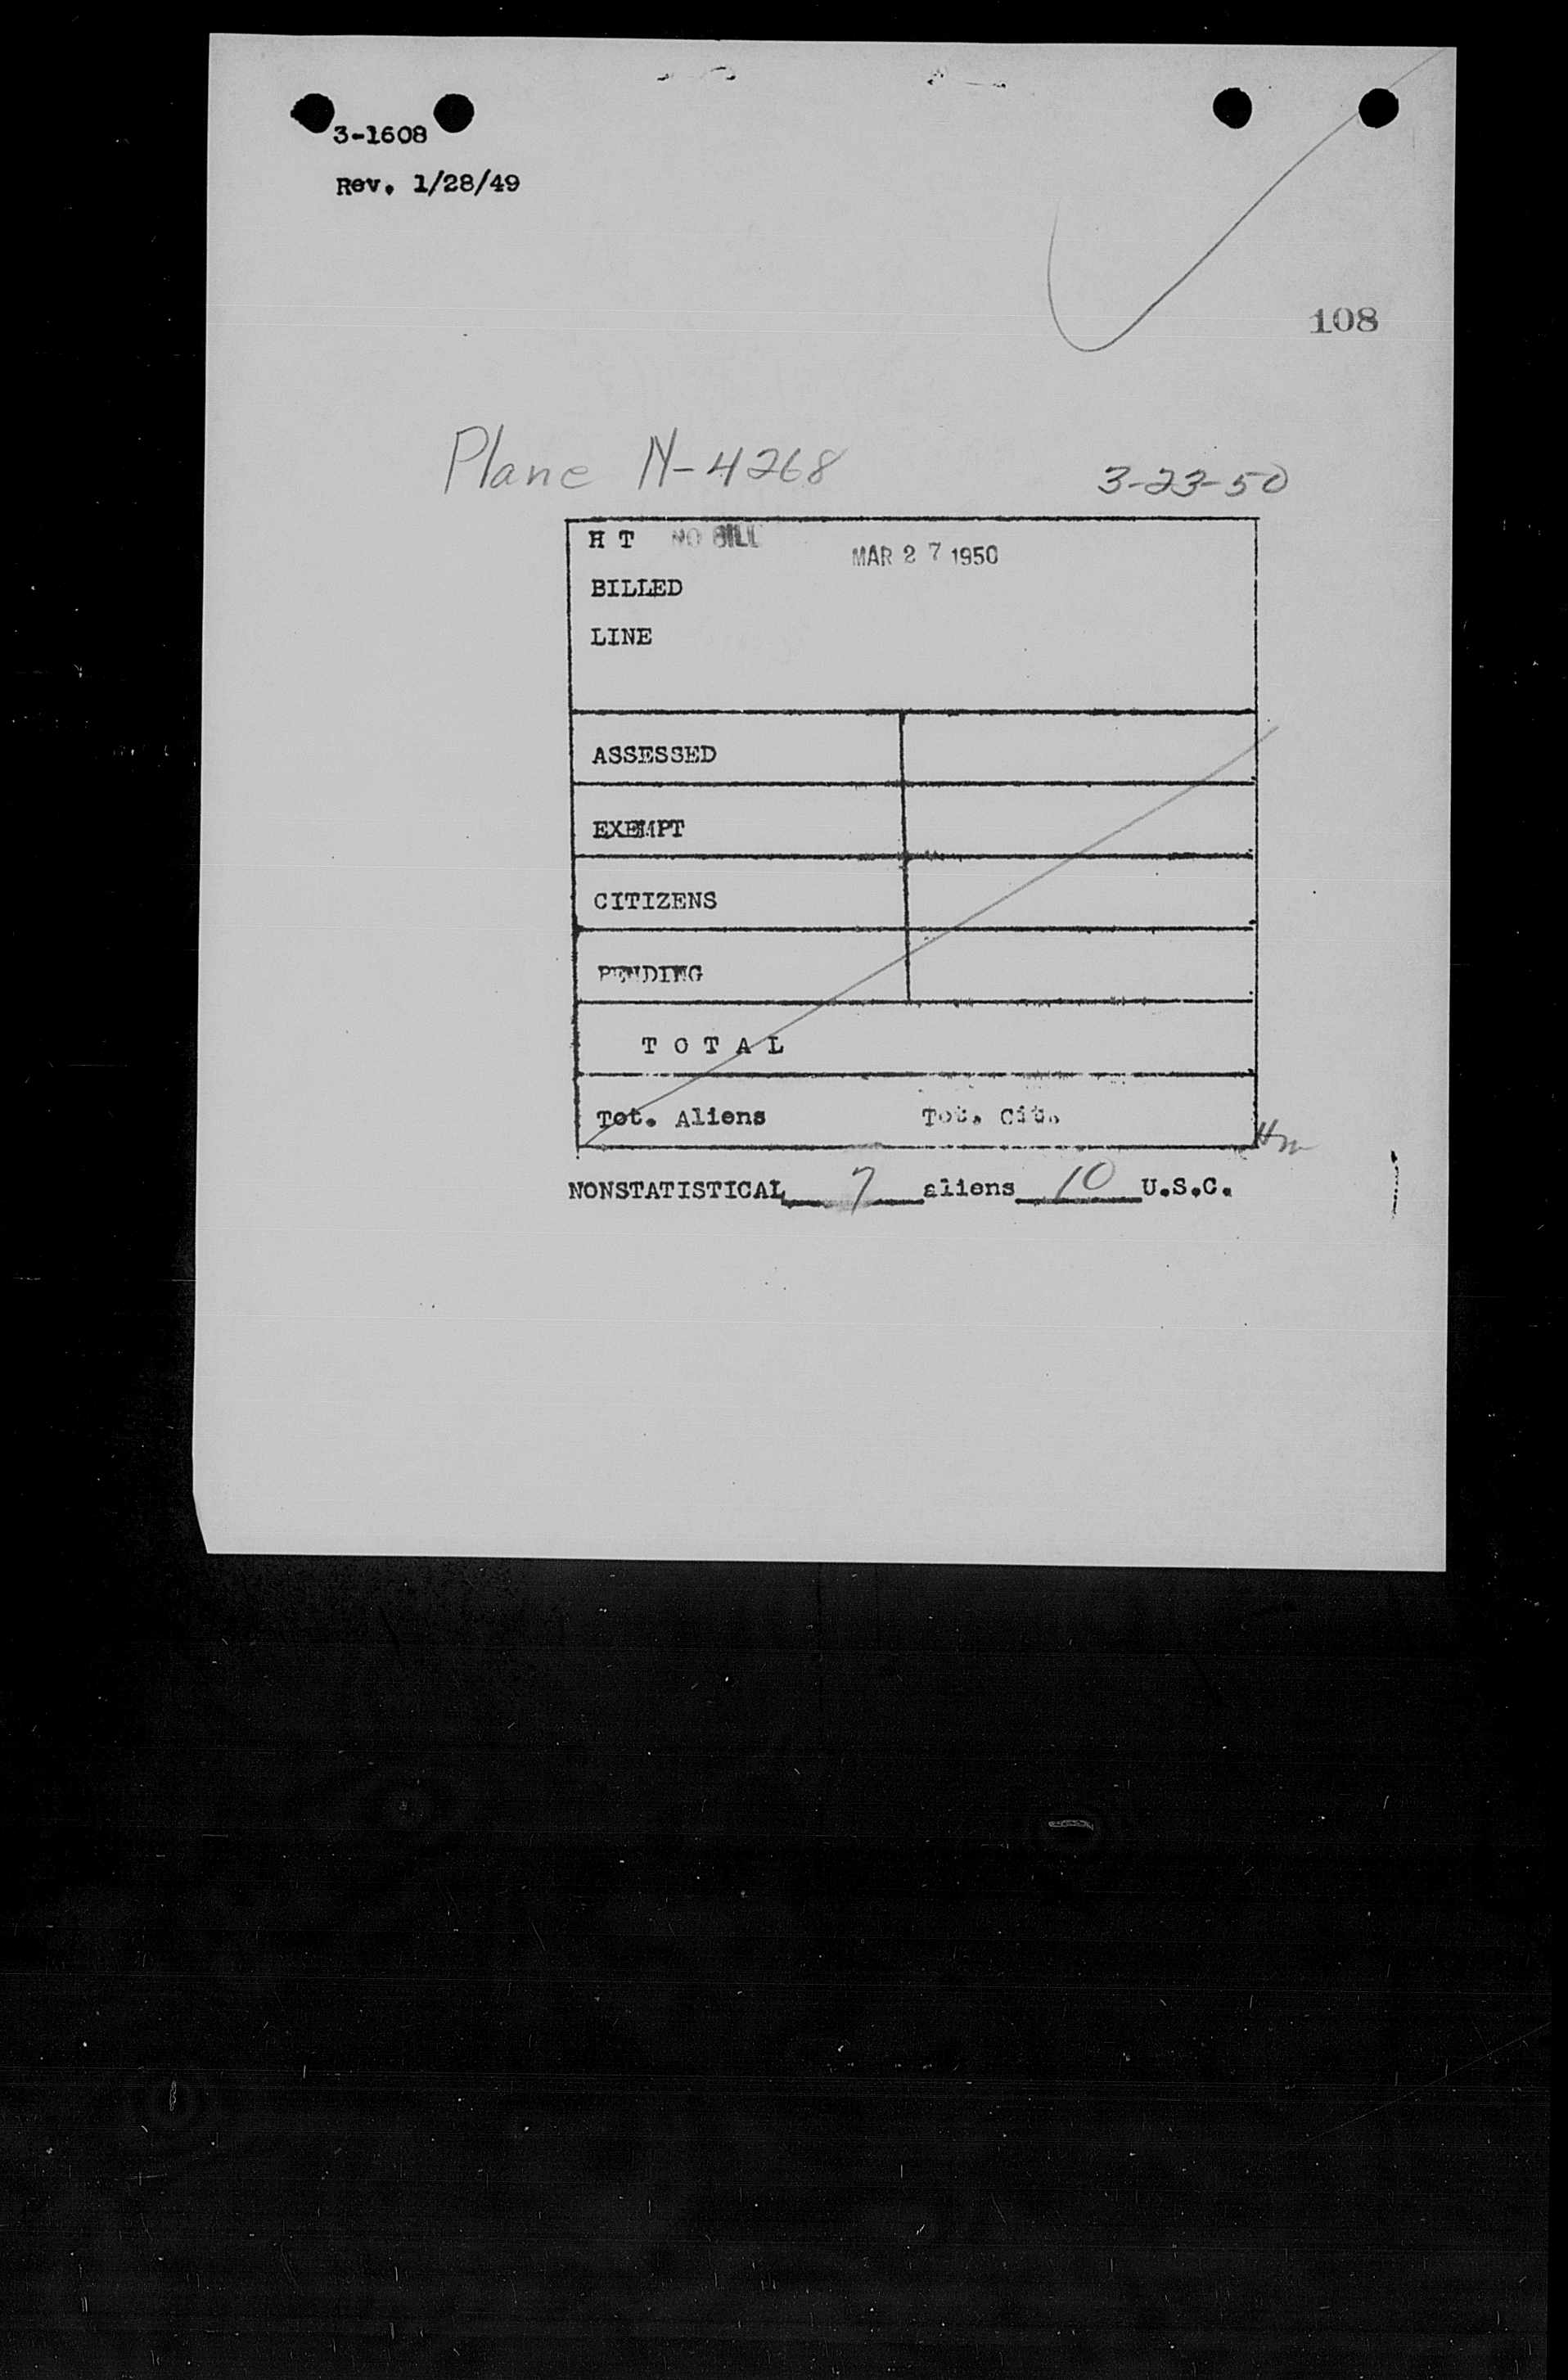 3-1608
Rev. 1/28/49
108
Plane N-4268 3-23-50
H T NO BILL MAR 27 1950
BILLED
LINE
ASSESSED
EXEMPT
CITIZENS
PENDING
T O T A L
Tot. Aliens Tot. Cit.
NONSTATISTICAL 7 aliens 10 U.S.C.